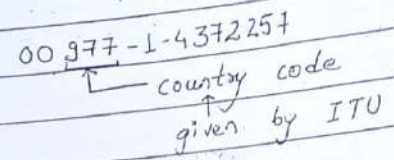 00 977-1-4372257
country code
given by ITU